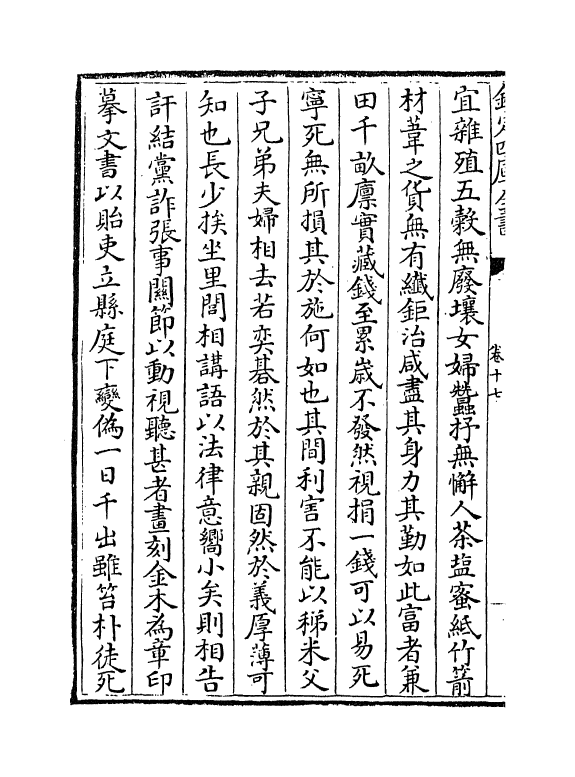 欽定四庫全書
卷十七
宜雜殖五穀無廢壤女婦蠶抒無懈人茶塩蜜紙竹箭
材葦之貨無有纎鉅治咸盡其身力其勤如此富者兼
田千畝廪實藏錢至累歲不發然視捐一錢可以易死
寧死無所損其於施何如也其間利害不能以稊米父
子兄弟夫婦相去若奕碁然於其親固然於義厚薄可
知也長少挨坐里閭相講語以法律意嚮小矣則相告
訐結黨詐張事關節以動視聽甚者畫刻金木為章印
摹文書以貽吏立縣庭下變偽一日千出雖笞朴徒死